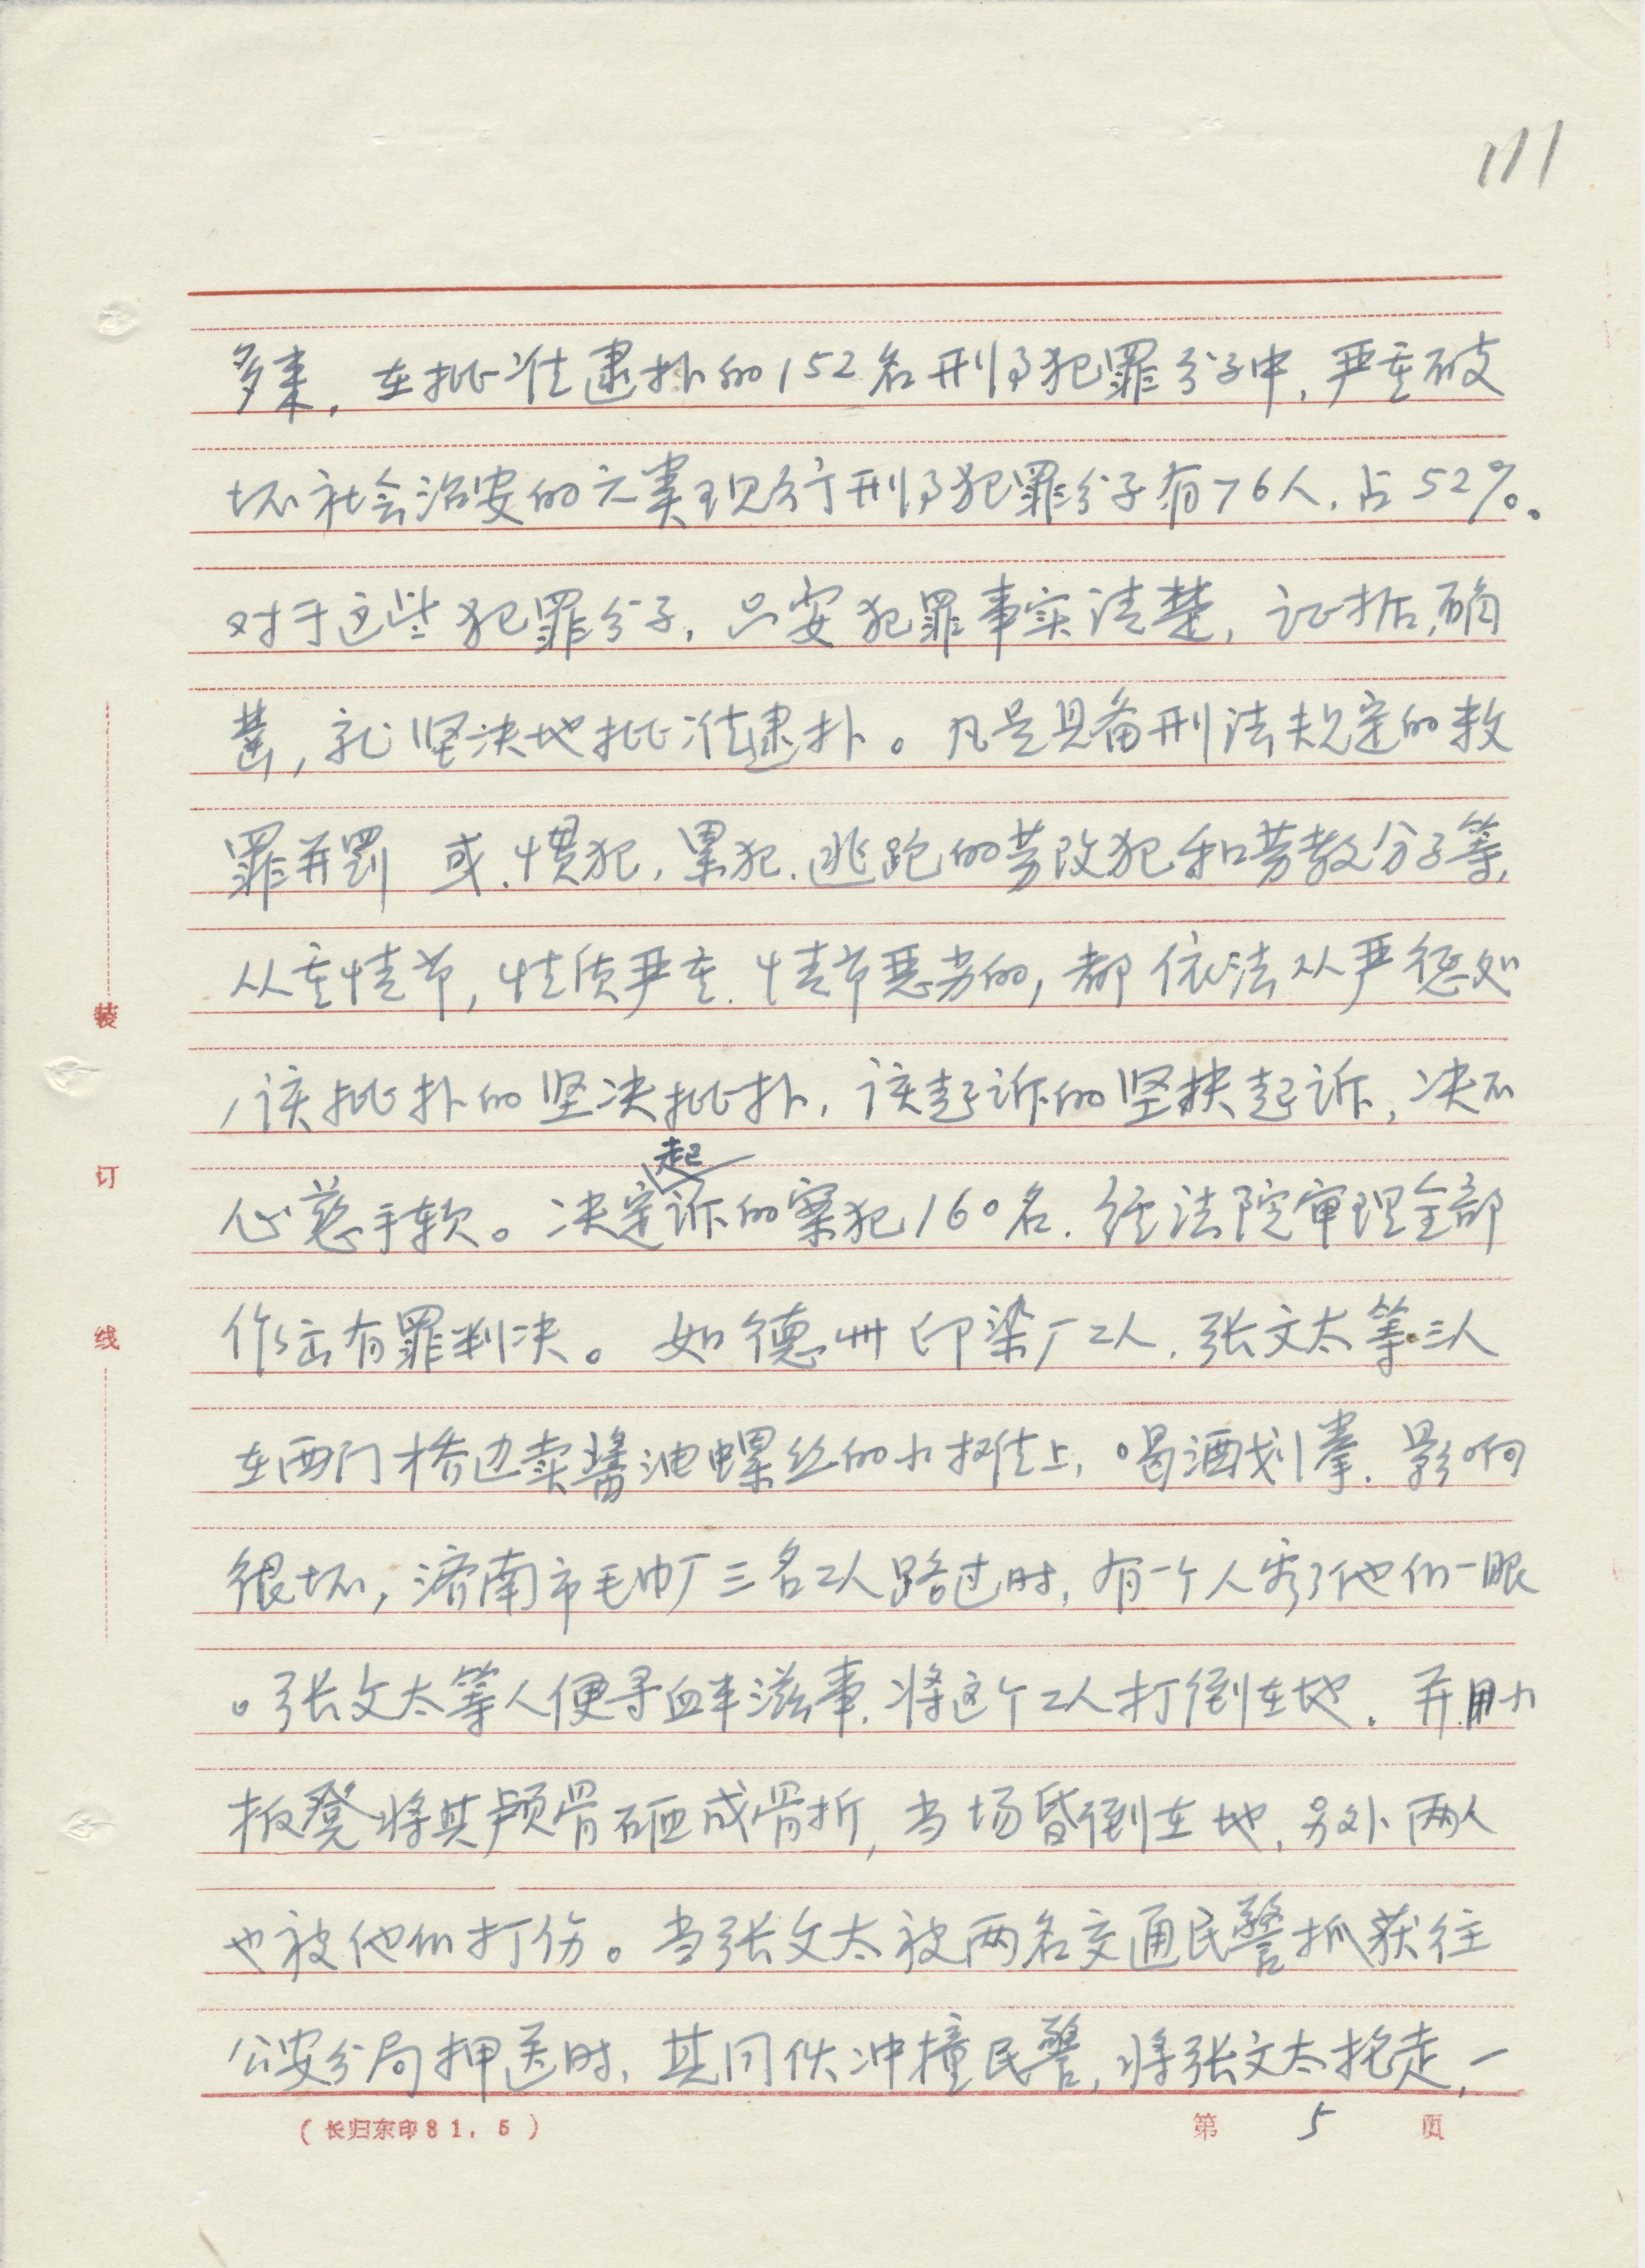 111
多来，在批准逮扑的152名刑事犯罪分子中，严重破
坏社会治安的六类现行刑事犯罪分子有76人，占52%。
对于这些犯罪分子，只要犯罪事实清楚，证据确
凿，就坚决地批准逮扑。凡是具备刑法规定的数
罪并罚 或、惯犯，累犯、逃跑的劳改犯和劳教分子等，
从重情节，性质严重、情节恶劣的，都依法从严惩处
，该批扑的坚决批扑，该起诉的坚抉起诉，决不
起
心慈手软。决定诉的案犯160名，经法院审理全部
作出有罪判决。如德州印染厂工人，张文太等三人
在西门桥边卖酱油螺丝的小摊上，喝酒划拳，影响
很坏，济南市毛巾厂三名工人路过时，有一个人看了他们一眼
。张文太等人便寻衅滋事，将这个工人打倒在地，并用小
板凳将其颅骨砸成骨折，当场昏倒在地，另外两人
也被他们打伤。当张文太被两名交通民警抓获往
公安分局押送时，其同伙冲撞民警，将张文太抢走，一
装
订
线
(长归东印81.5)
第 5 页